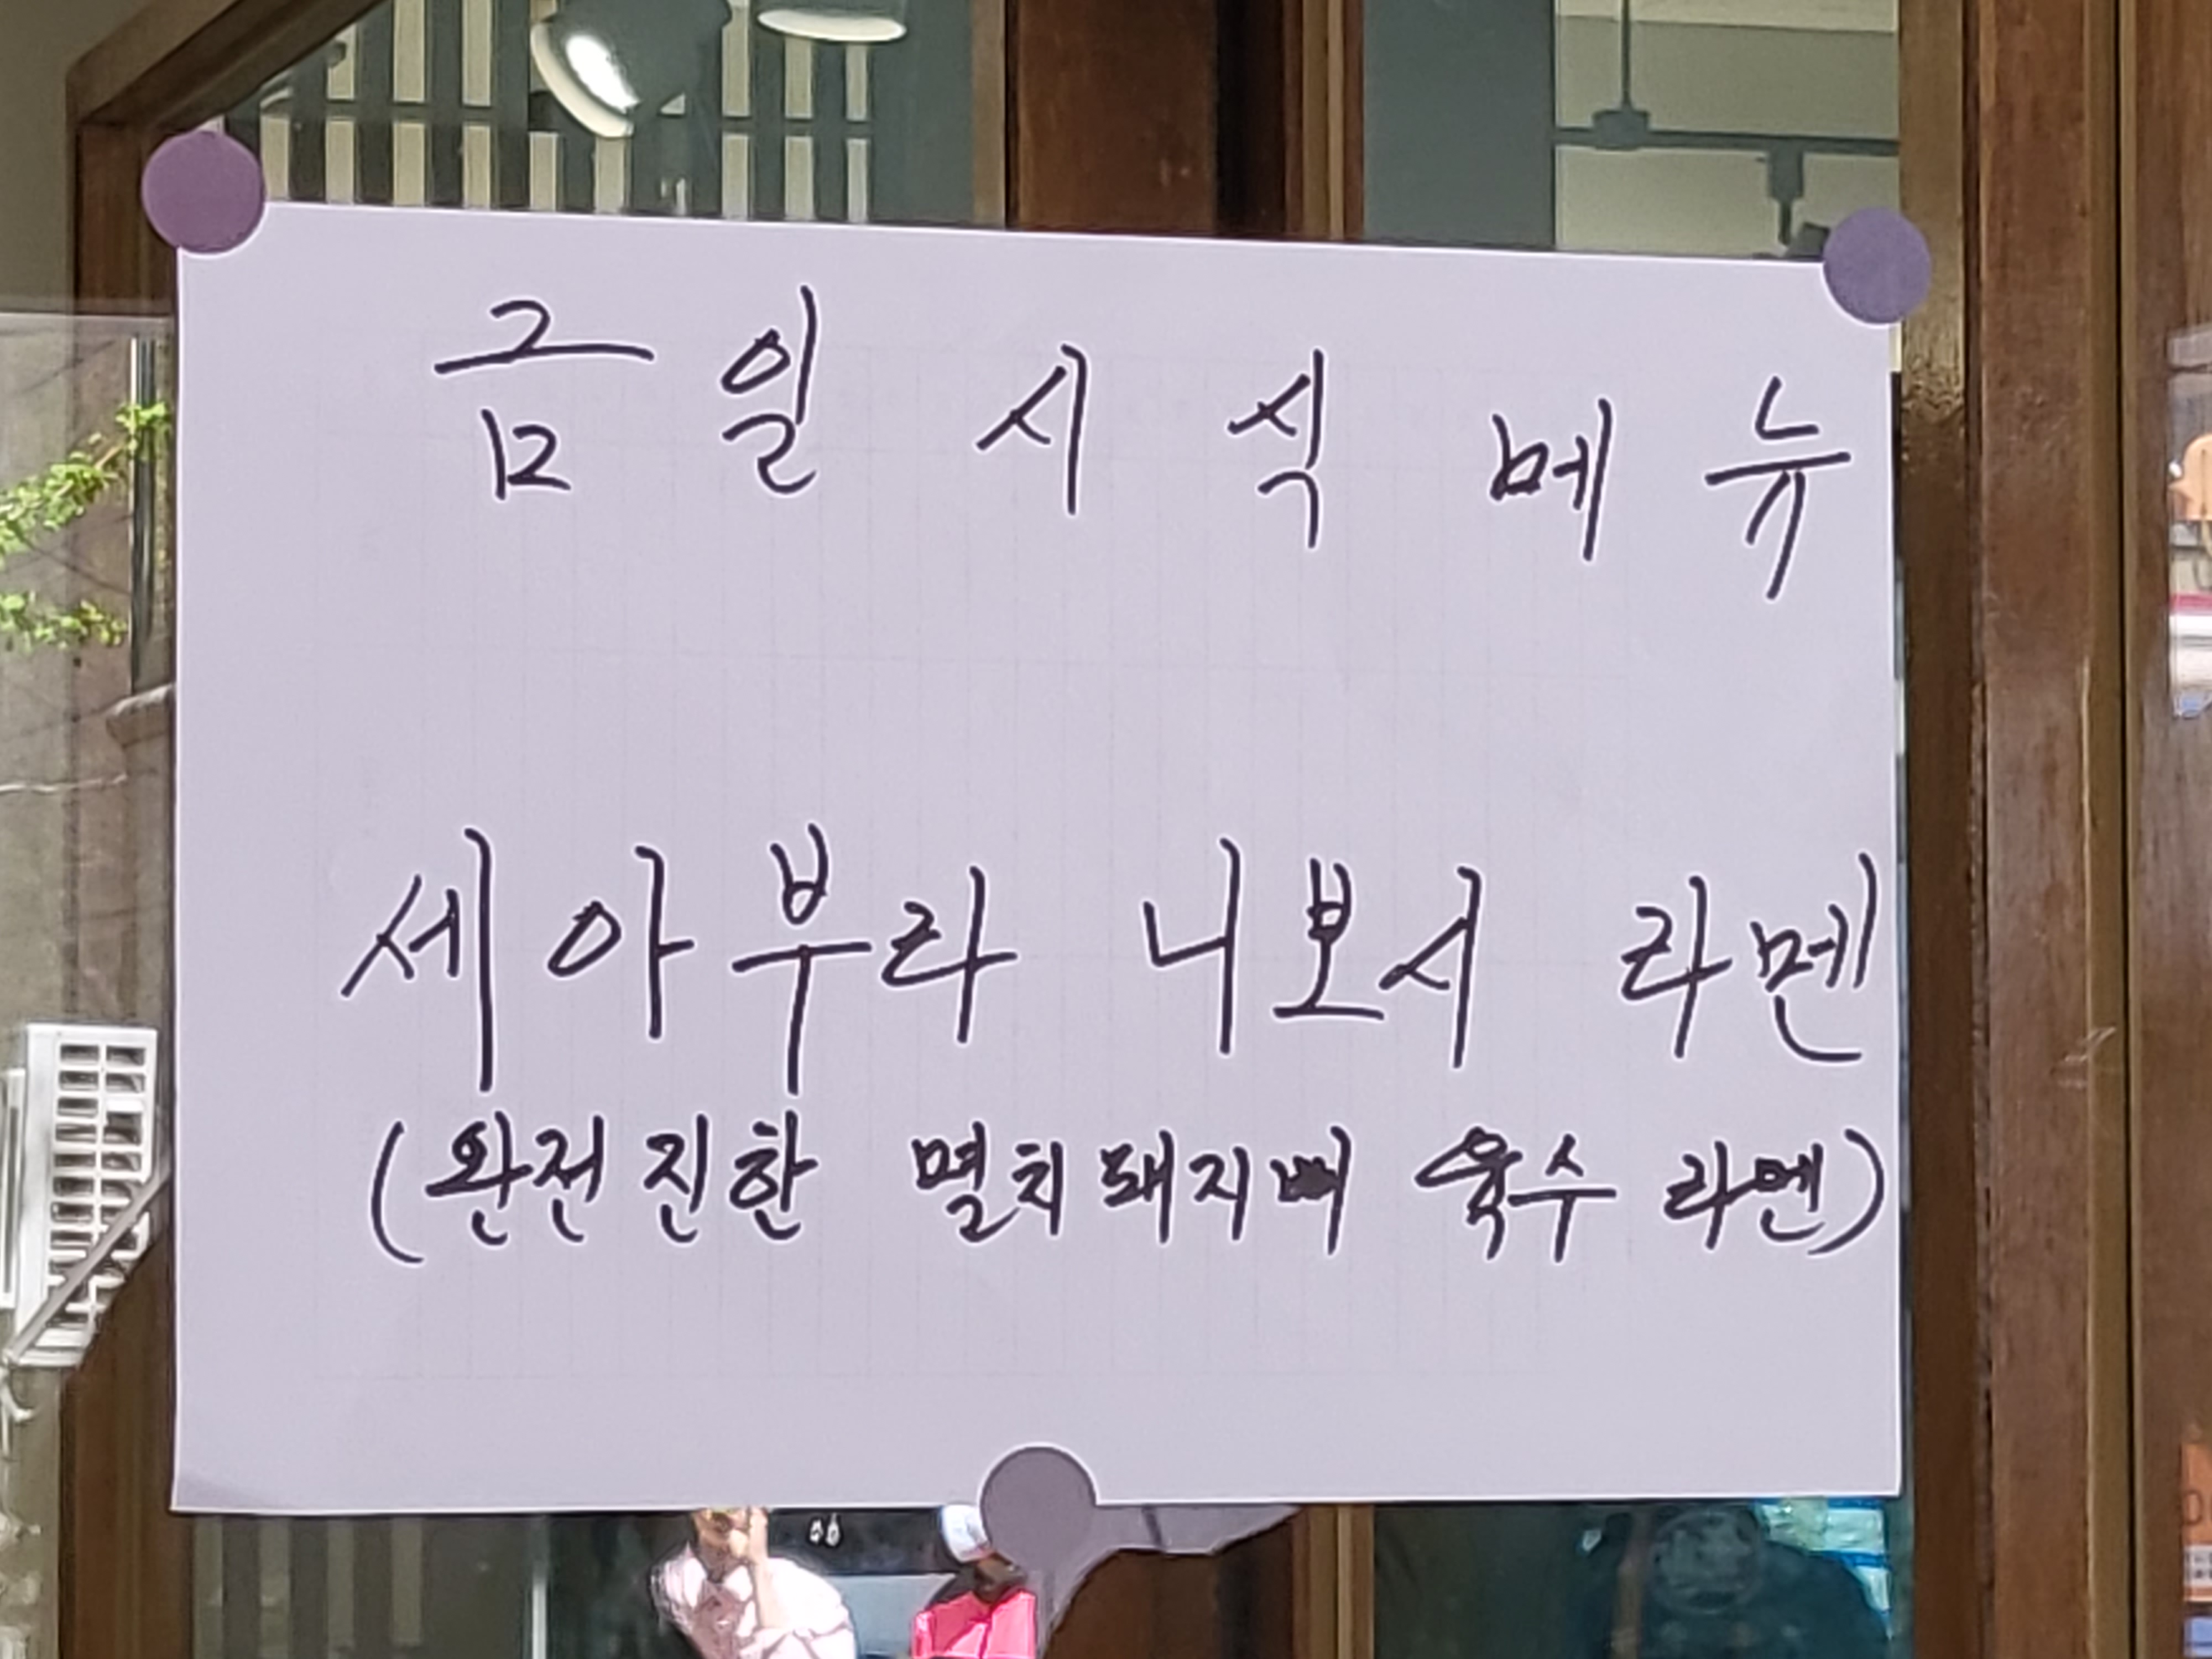 금일 시식 메뉴
세아부라 니보시 라멘
(완전진한 멸치돼지뼈 육수 라멘)